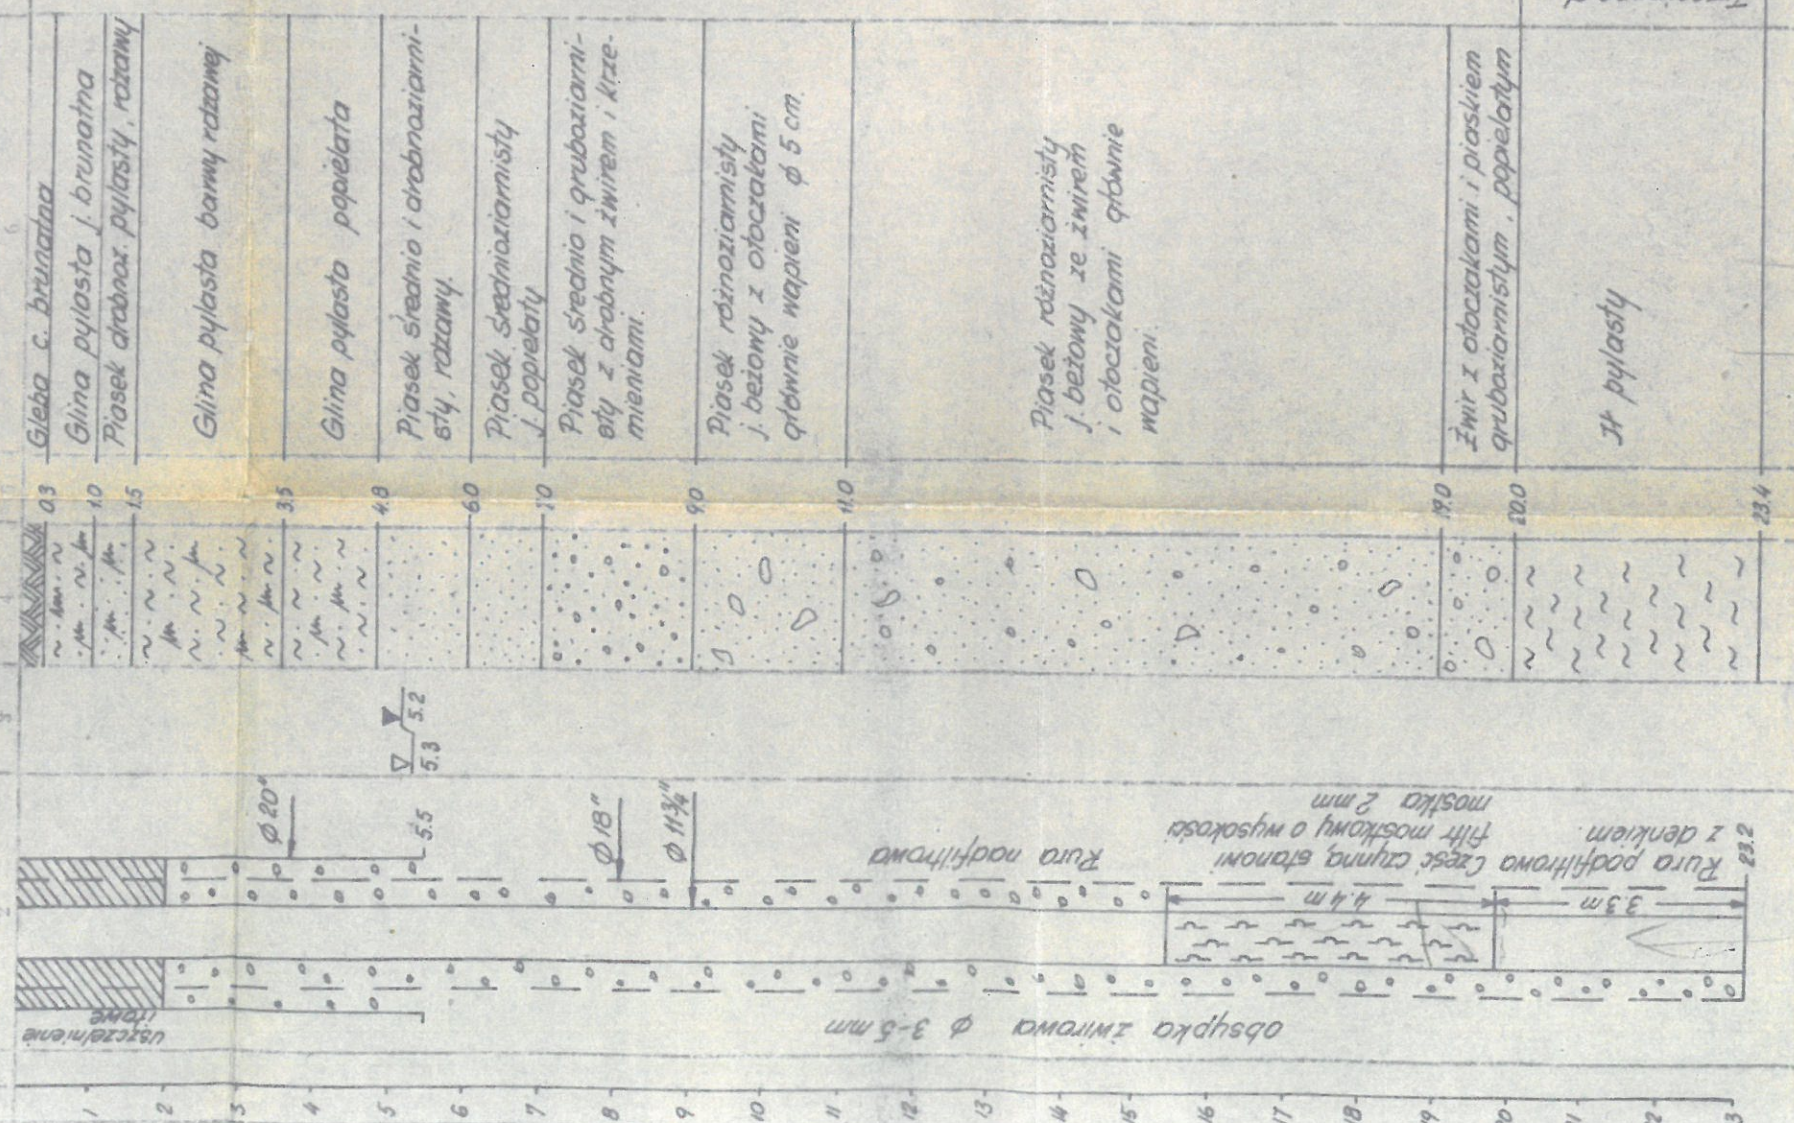 Gleba c. brunatna
Glina pylasta j. brunatna
Piasek drobnoz. pylasty, rdzawy
Glina pylasta barwy rdzawej
Glina pylasta popielata
Piasek średnio i drobnoziarni-
sty, rdzawy.
Piasek średnioziarnisty
j. popielaty
Piasek średnio i gruboziarni-
sty z drobnym żwirem i krze-
mieniami.
Piasek różnoziarnisty
j. beżowy z otoczakami
głównie wapieni ϕ 5 cm.
Piasek różnoziarnisty
j. beżowy ze żwirem
i otoczakami głównie
wapieni.
Żwir z otoczakami i piaskiem
gruboziarnistym, popielatym
Ił pylasty
0.3
1.0
1.5
3.5
4.8
6.0
7.0
9.0
11.0
19.0
20.0
23.4
6
4
3
2
5.3
5.2
ϕ 20"
5.5
ϕ 18"
ϕ 11¾"
Rura nadfiltrowa
Część czynną stanowi
filtr mostkowy o wysokości
mostka 2 mm
Rura podfiltrowa
z denkiem.
23.2
4.4 m
3.3 m
uszczelnienie
iłowe
obsypka żwirowa ϕ 3-5 mm
1
2
3
4
5
6
7
8
9
10
11
12
13
14
15
16
17
18
19
20